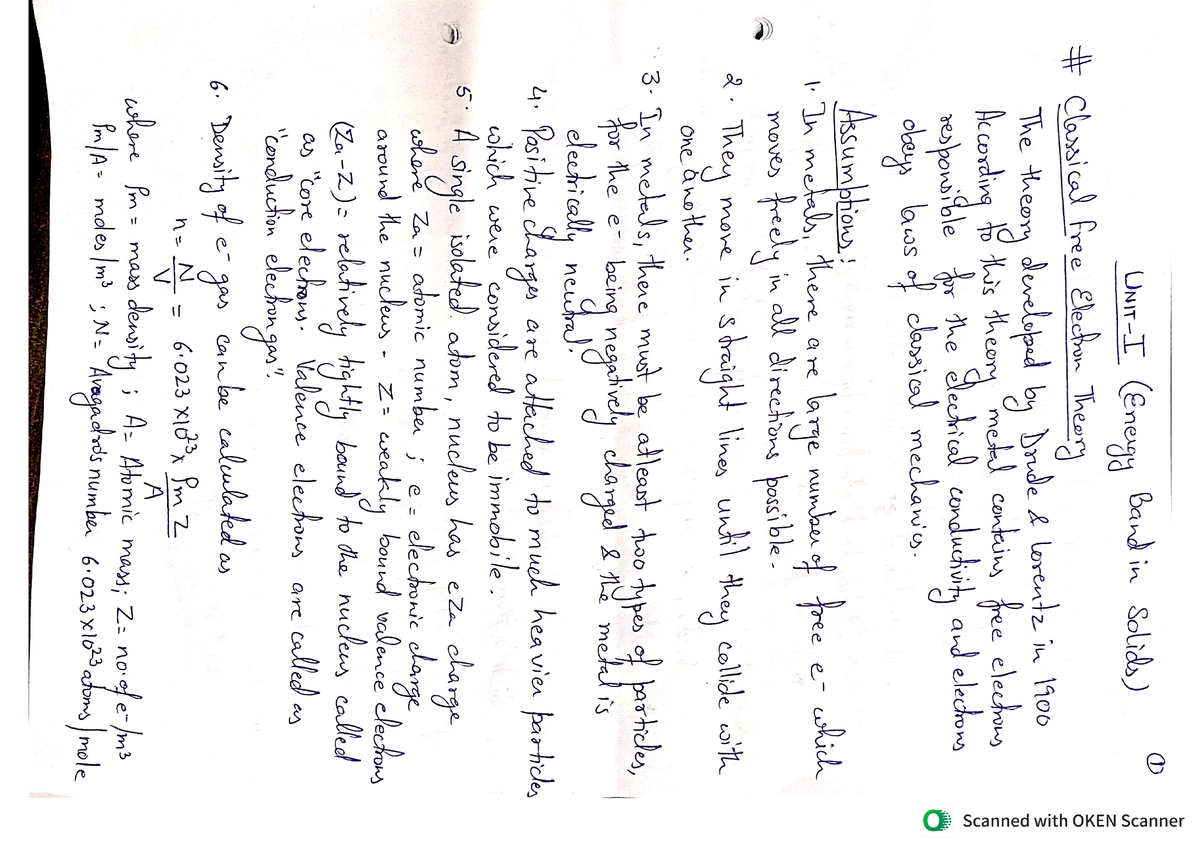 ①
UNIT-I (Energy Band in Solids)
# Classical free Electron Theory
The theory developed by Drude & Lorentz in 1900
According to this theory metal contains free electrons
responsible for the electrical conductivity and electrons
obeys laws of classical mechanics.
Assumptions:
1. In metals, there are large number of free e- which
moves freely in all directions possible.
2. They move in straight lines until they collide with
one another.
3. In metals, there must be atleast two types of particles,
for the e- being negatively charged & the metal is
electrically neutral.
4. Positive charges are attached to much heavier particles
which were considered to be immobile.
5. A single isolated atom, nucleus has eZa charge
where Za = atomic number ; e = electronic charge
around the nucleus. Z = weakly bound valence electrons
(Za-Z) = relatively tightly bound to the nucleus called
as "core electrons. Valence electrons are called as
"conduction electron gas".
6. Density of e- gas can be calculated as
n = N/V = 6.023 x10²³ x ρm Z/A
where ρm = mass density ; A = Atomic mass; Z = no. of e-/m³
ρm/A = moles/m³ ; N = Avagadro's number 6.023 x10²³ atoms/mole
Scanned with OKEN Scanner